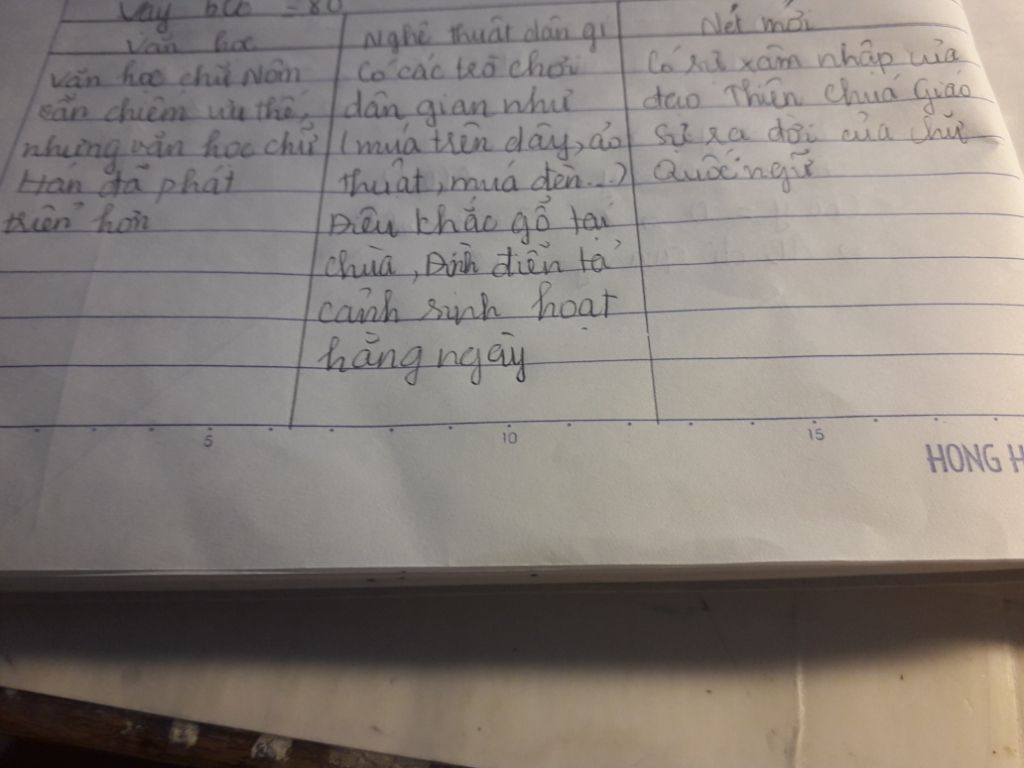 Vậy BCO = 80
Văn học
Nghệ thuật dân gi
Nét mới
Văn học chữ Nôm
sẵn chiếm ưu thế,
nhưng văn học chữ
Hán đã phát
triển hơn
Có các trò chơi
dân gian như
(múa trên dây, ảo
thuật, múa đèn...)
Điêu khắc gỗ tại
chùa, Đình diễn tả
cảnh sinh hoạt
hằng ngày
Có sự xâm nhập của
đạo Thiên Chuá Giáo
Sự ra đời của chữ
Quốc ngữ
5 10 15
HONG H